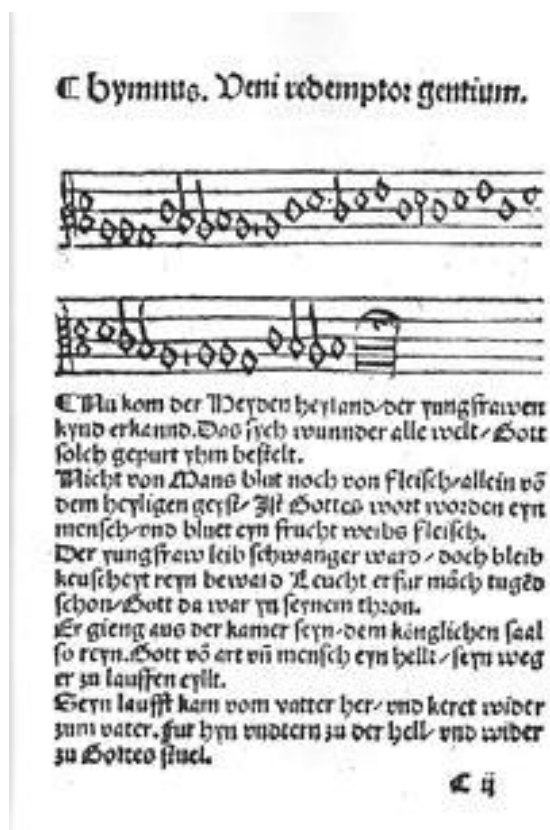 ¶ Hymnus. Veni redemptor gentium.
¶ Nu kom der Heyden heyland/der yungfrawen
kynd erkannd. Das sych wunnder alle welt/Gott
solch gepurt yhm bestelt.
Nicht von Mans blut noch von fleisch/allein võ
dem heyligen geyst/Ist Gottes wort worden eyn
mensch/vnd bluet eyn frucht weibs fleisch.
Der yungfraw leib schwanger ward/doch bleib
keuscheyt reyn beward Leucht erfur mãch tugẽd
schon/Gott da war yn seynem thron.
Er gieng aus der kamer seyn/dem könglichen saal
so reyn. Gott võ art vñ mensch eyn hellt/seyn weg
er zu lauffen eyllt.
Seyn laufft kam vom vatter her/vnd keret wider
zum vater. fur hyn vndtern zu der hell/vnd wider
zu Gottes stuel.
C ij